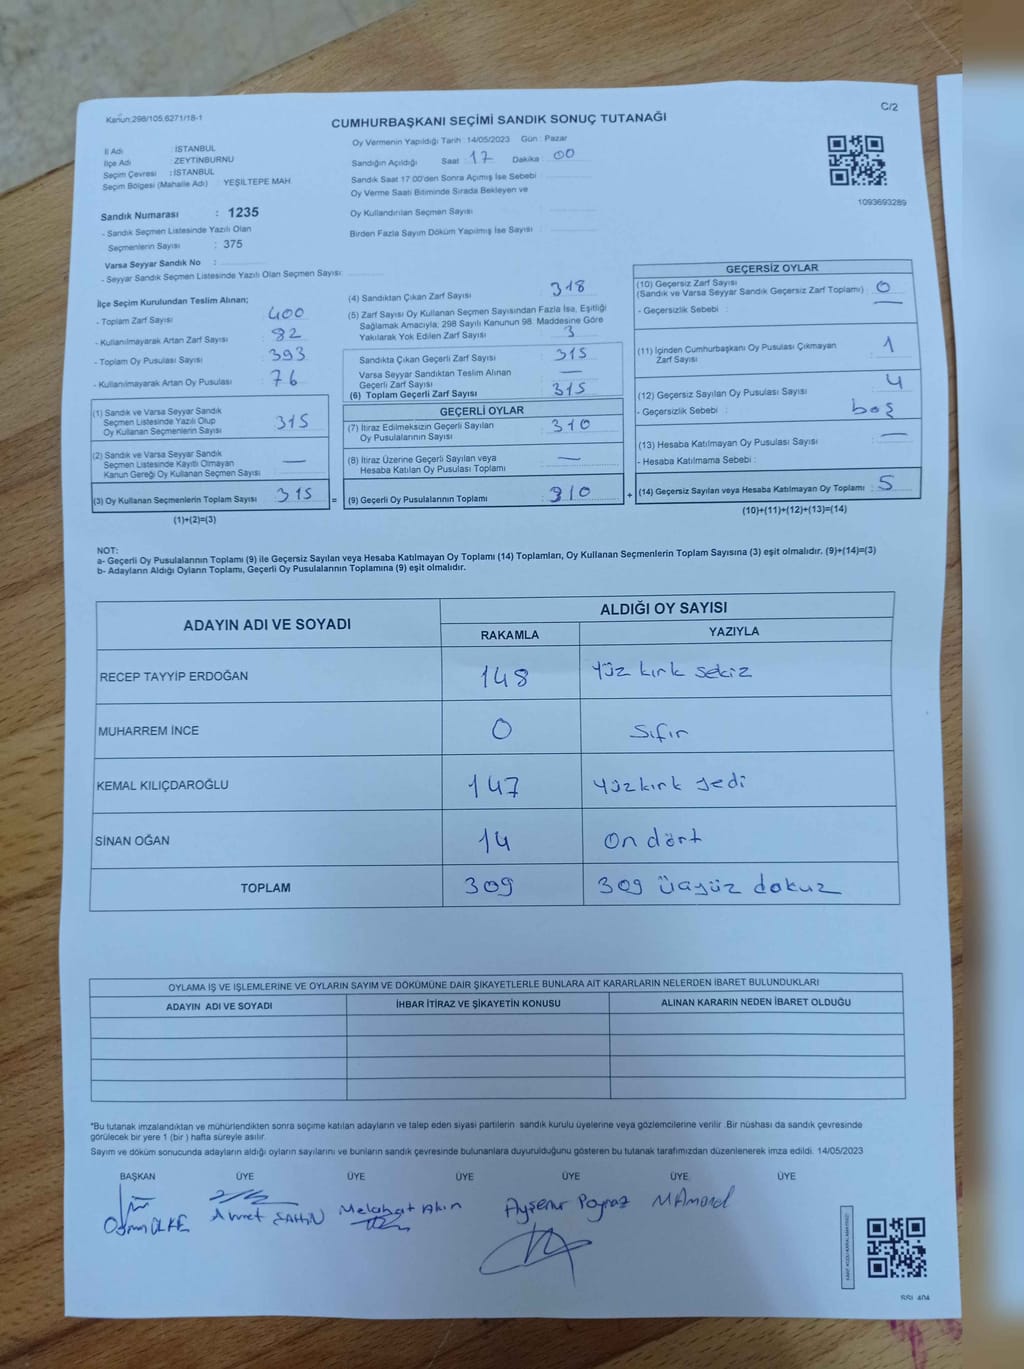 Kanun:298/105,6271/18-1
C/2
CUMHURBAŞKANI SEÇİMİ SANDIK SONUÇ TUTANAĞI
İl Adı : İSTANBUL
İlçe Adı : ZEYTİNBURNU
Seçim Çevresi : İSTANBUL
Seçim Bölgesi (Mahalle Adı) : YEŞİLTEPE MAH.
Oy Vermenin Yapıldığı Tarih :14/05/2023 Gün : Pazar
Sandığın Açıldığı Saat : 17 Dakika : 00
Sandık Saat 17:00'den Sonra Açımış İse Sebebi :
Oy Verme Saati Bitiminde Sırada Bekleyen ve
Oy Kullandırılan Seçmen Sayısı :
Birden Fazla Sayım Döküm Yapılmış İse Sayısı :
1093693289
Sandık Numarası : 1235
- Sandık Seçmen Listesinde Yazılı Olan
Seçmenlerin Sayısı : 375
Varsa Seyyar Sandık No :
- Seyyar Sandık Seçmen Listesinde Yazılı Olan Seçmen Sayısı:
İlçe Seçim Kurulundan Teslim Alınan;
- Toplam Zarf Sayısı : 400
- Kullanılmayarak Artan Zarf Sayısı : 82
- Toplam Oy Pusulası Sayısı : 393
- Kullanılmayarak Artan Oy Pusulası : 76
(1) Sandık ve Varsa Seyyar Sandık
Seçmen Listesinde Yazılı Olup
Oy Kullanan Seçmenlerin Sayısı : 315
(2) Sandık ve Varsa Seyyar Sandık
Seçmen Listesinde Kayıtlı Olmayan
Kanun Gereği Oy Kullanan Seçmen Sayısı : —
(3) Oy Kullanan Seçmenlerin Toplam Sayısı : 315
(1)+(2)=(3)
(4) Sandıktan Çıkan Zarf Sayısı : 318
(5) Zarf Sayısı Oy Kullanan Seçmen Sayısından Fazla İsa, Eşitliği
Sağlamak Amacıyla, 298 Sayılı Kanunun 98. Maddesine Göre
Yakılarak Yok Edilen Zarf Sayısı : 3
Sandıkta Çıkan Geçerli Zarf Sayısı : 315
Varsa Seyyar Sandıktan Teslim Alınan
Geçerli Zarf Sayısı : —
(6) Toplam Geçerli Zarf Sayısı : 315
GEÇERLİ OYLAR
(7) İtiraz Edilmeksizin Geçerli Sayılan
Oy Pusulalarının Sayısı : 310
(8) İtiraz Üzerine Geçerli Sayılan veya
Hesaba Katılan Oy Pusulası Toplamı : —
= (9) Geçerli Oy Pusulalarının Toplamı : 310
GEÇERSİZ OYLAR
(10) Geçersiz Zarf Sayısı
(Sandık ve Varsa Seyyar Sandık Geçersiz Zarf Toplamı) : 0
- Geçersizlik Sebebi : —
(11) İçinden Cumhurbaşkanı Oy Pusulası Çıkmayan
Zarf Sayısı : 1
(12) Geçersiz Sayılan Oy Pusulası Sayısı : 4
- Geçersizlik Sebebi : boş
(13) Hesaba Katılmayan Oy Pusulası Sayısı : —
- Hesaba Katılmama Sebebi :
+ (14) Geçersiz Sayılan veya Hesaba Katılmayan Oy Toplamı : 5
(10)+(11)+(12)+(13)=(14)
NOT:
a- Geçerli Oy Pusulalarının Toplamı (9) ile Geçersiz Sayılan veya Hesaba Katılmayan Oy Toplamı (14) Toplamları, Oy Kullanan Seçmenlerin Toplam Sayısına (3) eşit olmalıdır. (9)+(14)=(3)
b- Adayların Aldığı Oyların Toplamı, Geçerli Oy Pusulalarının Toplamına (9) eşit olmalıdır.
ADAYIN ADI VE SOYADI ALDIĞI OY SAYISI
RAKAMLA YAZIYLA
RECEP TAYYİP ERDOĞAN 148 Yüz kırk sekiz
MUHARREM İNCE 0 Sıfır
KEMAL KILIÇDAROĞLU 147 Yüzkırk yedi
SİNAN OĞAN 14 On dört
TOPLAM 309 309 üçyüz dokuz
OYLAMA İŞ VE İŞLEMLERİNE VE OYLARIN SAYIM VE DÖKÜMÜNE DAİR ŞİKAYETLERLE BUNLARA AİT KARARLARIN NELERDEN İBARET BULUNDUKLARI
ADAYIN ADI VE SOYADI İHBAR İTİRAZ VE ŞİKAYETİN KONUSU ALINAN KARARIN NEDEN İBARET OLDUĞU
*Bu tutanak imzalandıktan ve mühürlendikten sonra seçime katılan adayların ve talep eden siyasi partilerin sandık kurulu üyelerine veya gözlemcilerine verilir .Bir nüshası da sandık çevresinde
görülecek bir yere 1 (bir ) hafta süreyle asılır.
Sayım ve döküm sonucunda adayların aldığı oyların sayılarını ve bunların sandık çevresinde bulunanlara duyurulduğunu gösteren bu tutanak tarafımızdan düzenlenerek imza edildi. 14/05/2023
BAŞKAN ÜYE ÜYE ÜYE ÜYE ÜYE ÜYE
ÜLKE Ahmet ŞAHİN Melahat Akın Ayşenur Poyraz